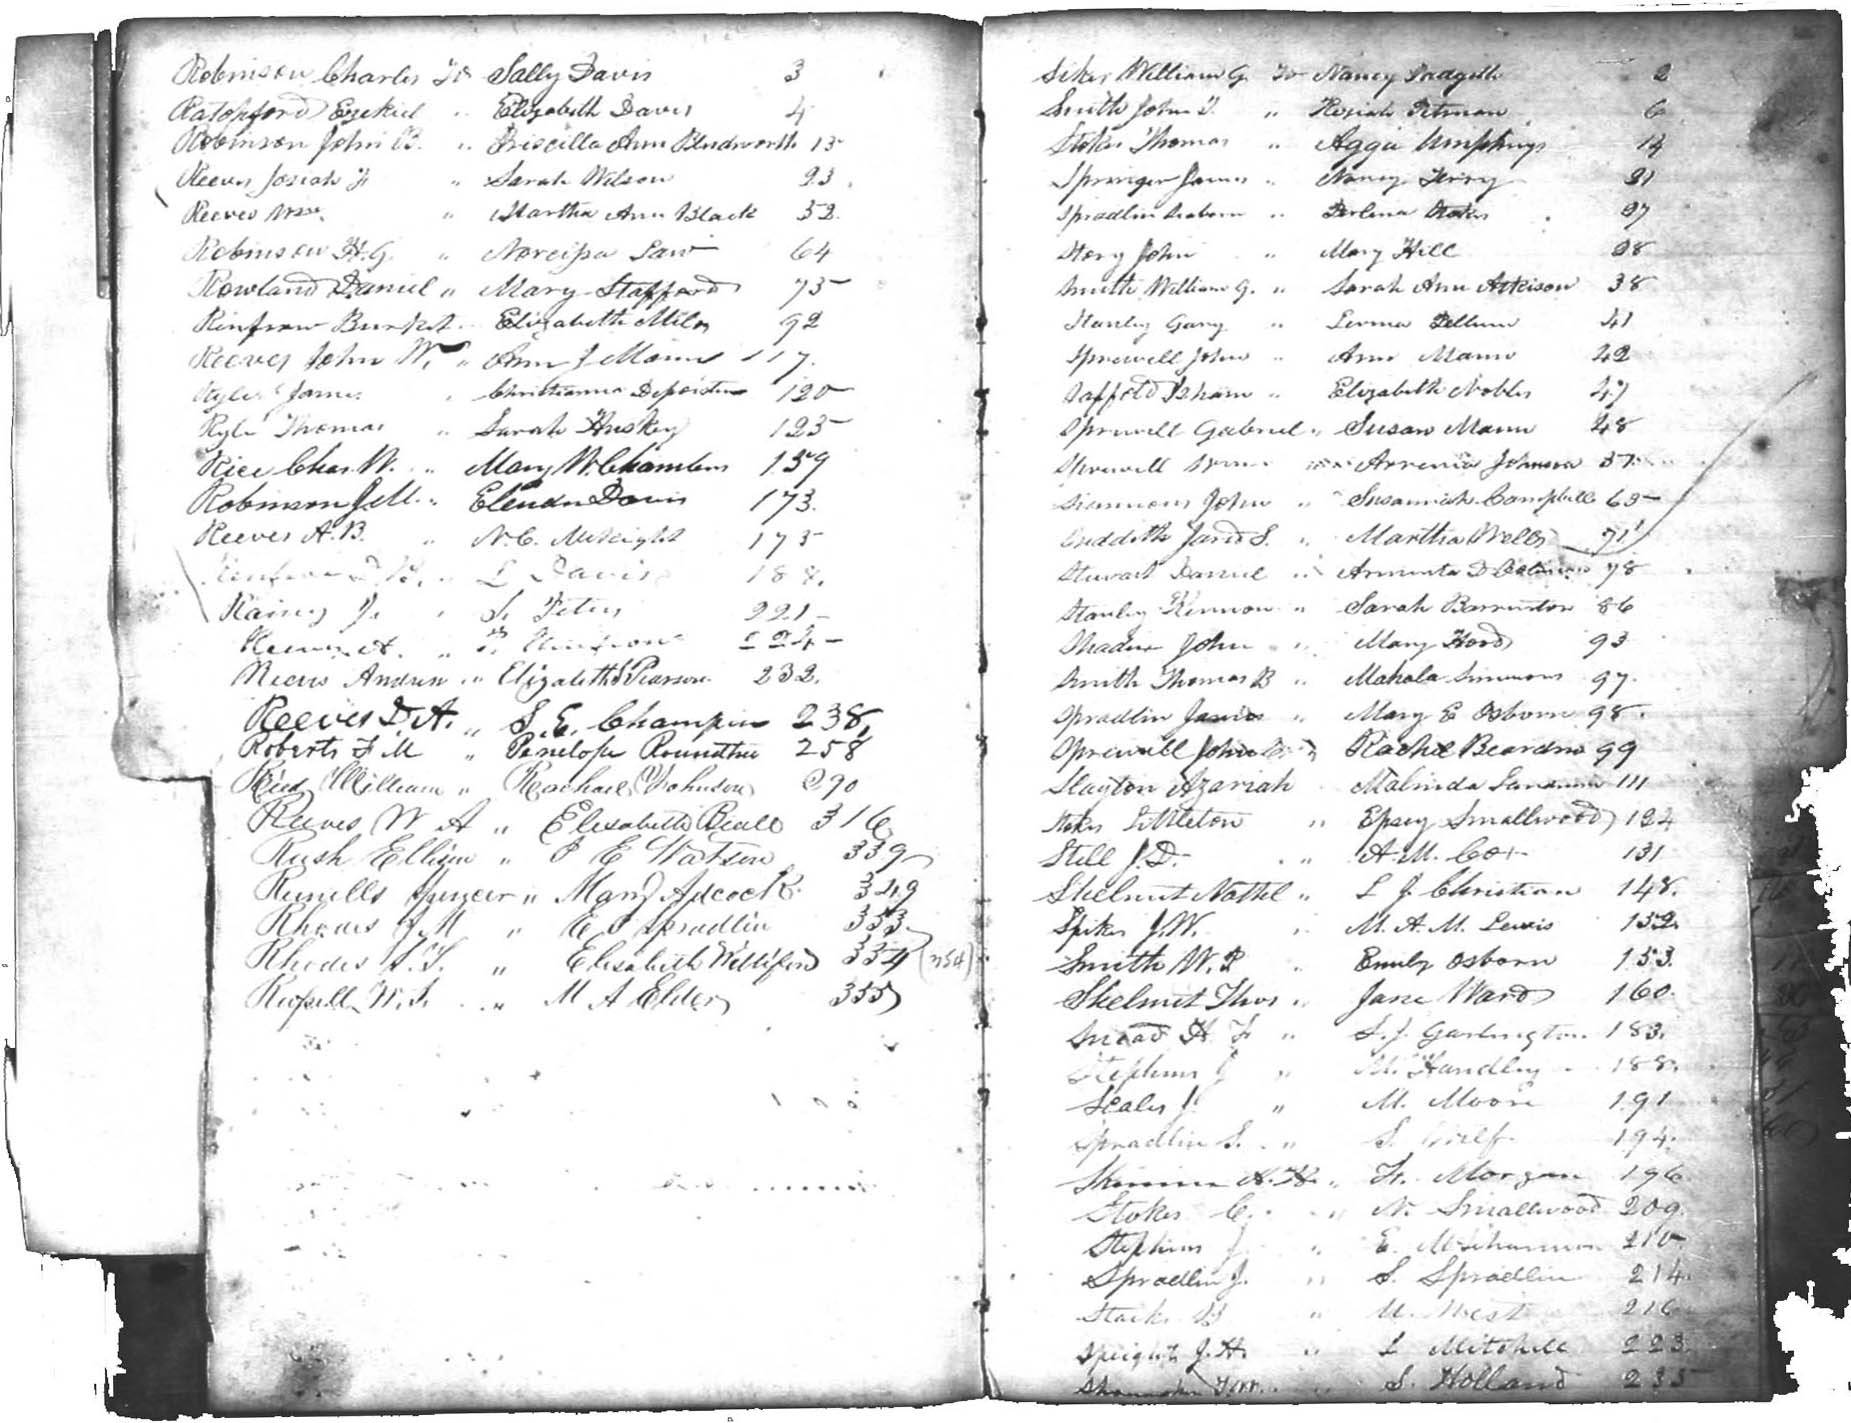 Robinson Charles To Sally Davis 3
Ezekiel " Elizabeth Davis 4
Robinson John B. " Priscilla Ann Bludworth 13
Reeves Josiah F " Sarah Wilson 23
Reeves Wm. " Martha Ann Black 32.
Robinson H. G. " Narcissa Law 64
Rowland Daniel " Mary Stafford 75
Renfrow " Elizabeth Mils 92
Reeves John W. " Ann J Mann 117.
James " Christianna 120
Kyle Thomas " Sarah Huskey 125
Rice Chas. W. " Mary W. Chambers 159
Robinson J. M. " Davis 173.
Reeves A. B. " N. C. McKnight 175
L Davis 188.
Rainey J. " Peters 221
A. " 224
Reeves Andrew " Elizabeth Pearson 232.
Reeves D. A. " S. E. Champion 238,
Roberts F M " Penelope Roundtree 258
Reid William " Rachael Johnson 290
Reeves W A " Elizabeth Beall 316
Rush " P E Watson 339
Runells Spencer " Mary Adcock 349
Rhodes J M " E P Spradlin 353
Rhodes " Elisabeth Williford 354 (354)
Russell W. S. " M A Elder 355
William G. To Nancy Padgett 2
Smith John " Kesiah Pitman 6
Stokes Thomas " Aggie Umphreys 14
Springer James " Nancy Terry 21
Spradlin " Stokes 27
Story John " Mary Hill 28
Smith William G. " Sarah Ann Atkison 38
Stanley " 41
Sprewell John " Ann Mann 42
Saffold Isham " Elizabeth Nobles 47
Sprewell Gabriel " Susan Mann 48
Sprewell " Johnson 57
Simmons John " Susannah Campbell 65
S. " Martha Wells 71
Stewart Daniel " 78
Stanley Kinnon " Sarah Barrenton 86
John " Mary Hood 93
Smith Thomas B " Mahala Simmons 97.
Spradlin James " Mary E Osborn 98.
Sprewell John " Rachel Bearden 99
Slayton Azariah Malinda 111
Stokes Littleton " Epsey Smallwood 124
Still J. D. " A. M. Cox 131
Skelnut Nathl " L J. Christian 148.
Spikes J. W. " M. A. M. Lewis 152.
Smith W. P " Emily Osborn 153.
Skelnut Thos " Jane Ward 160.
Snead H. F. " S. J. Garlington 183.
Stephens J " M. Handley 188.
Scales J. " M. Moore 191
Spradlin S. " S. 194.
Skinner H. H. " Morgan 196
Stokes C. " N. Smallwood 209.
Stephens J. " E. 210
Spradlin J. " S. Spradlin 214.
" West 216
Speights J. H. " L Mitchell 223.
" S. Holland 235